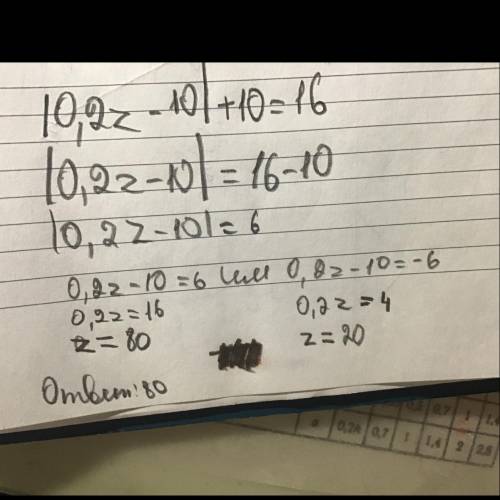 |0,2z-10|+10=16
|0,2z-10|=16-10
|0,2z-10|=6
0,2z-10=6 или 0,2z-10=-6
0,2z=16 0,2z=4
z=80 z=20
Ответ:80
0,7 1 1,4
a 0,2k 0,7 1 1,4 2 2,8